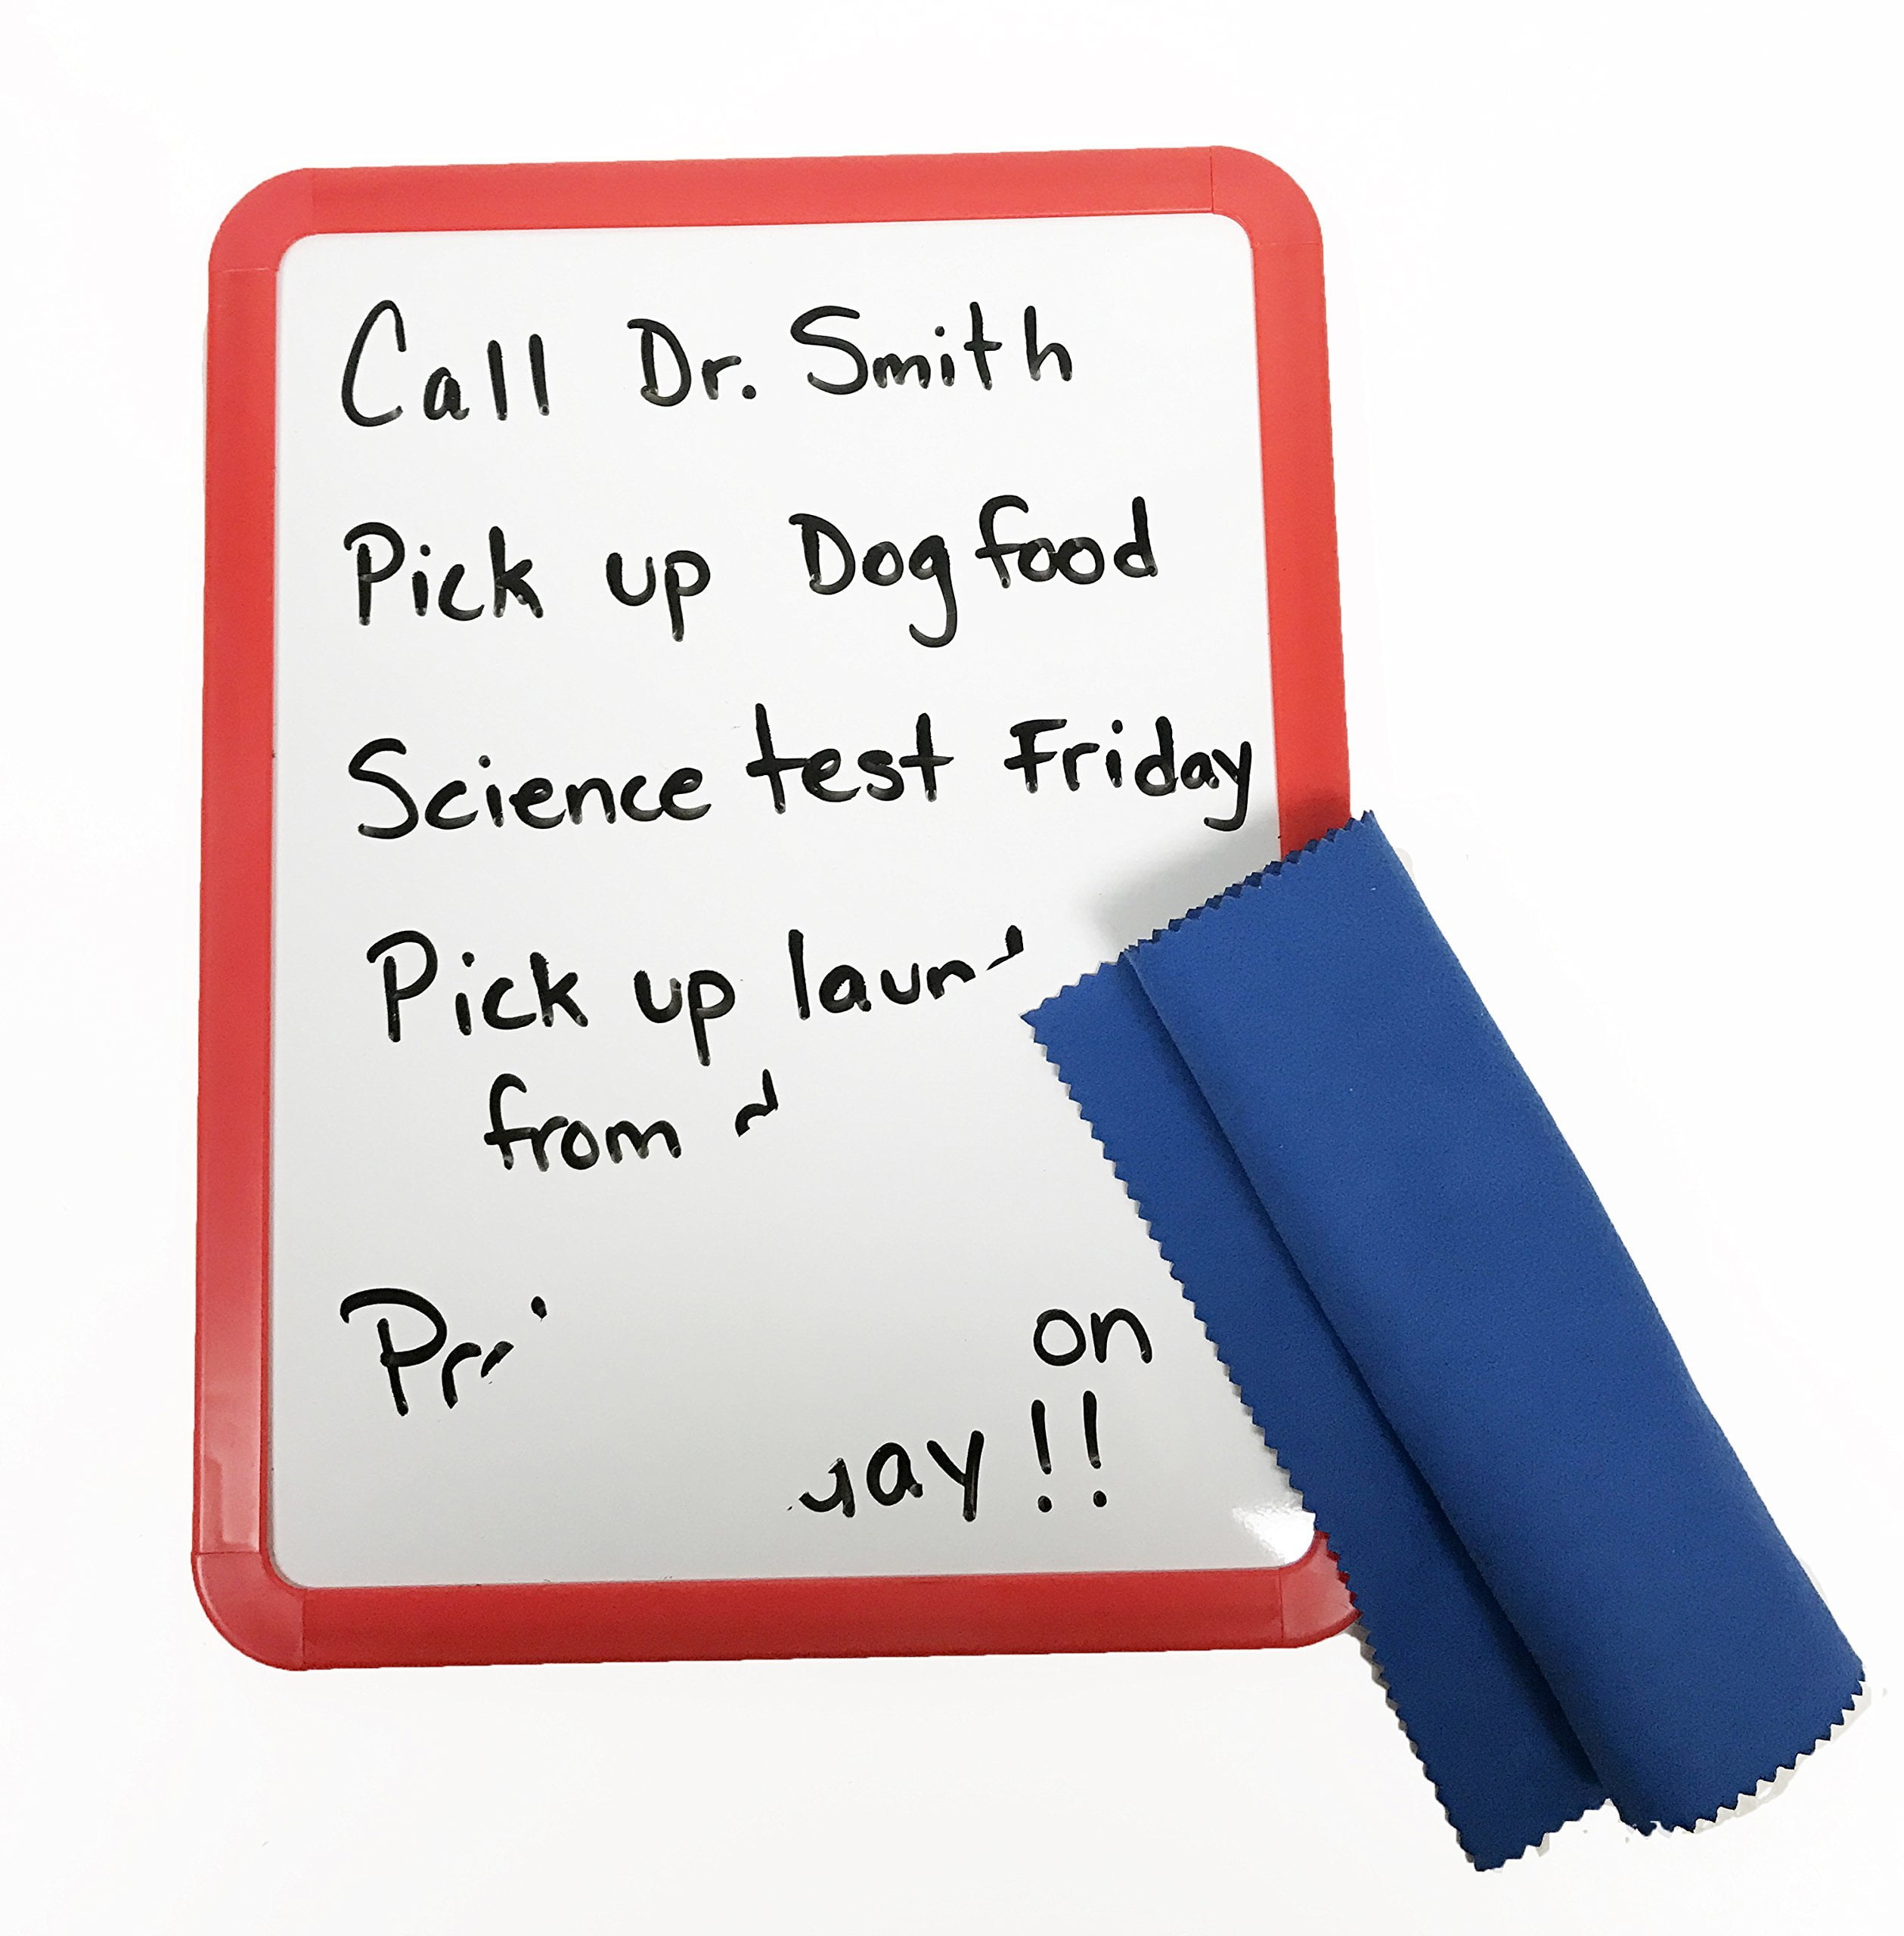 Call Dr. Smith
Pick up Dog food
Science test Friday
Pick up
from
on
!!